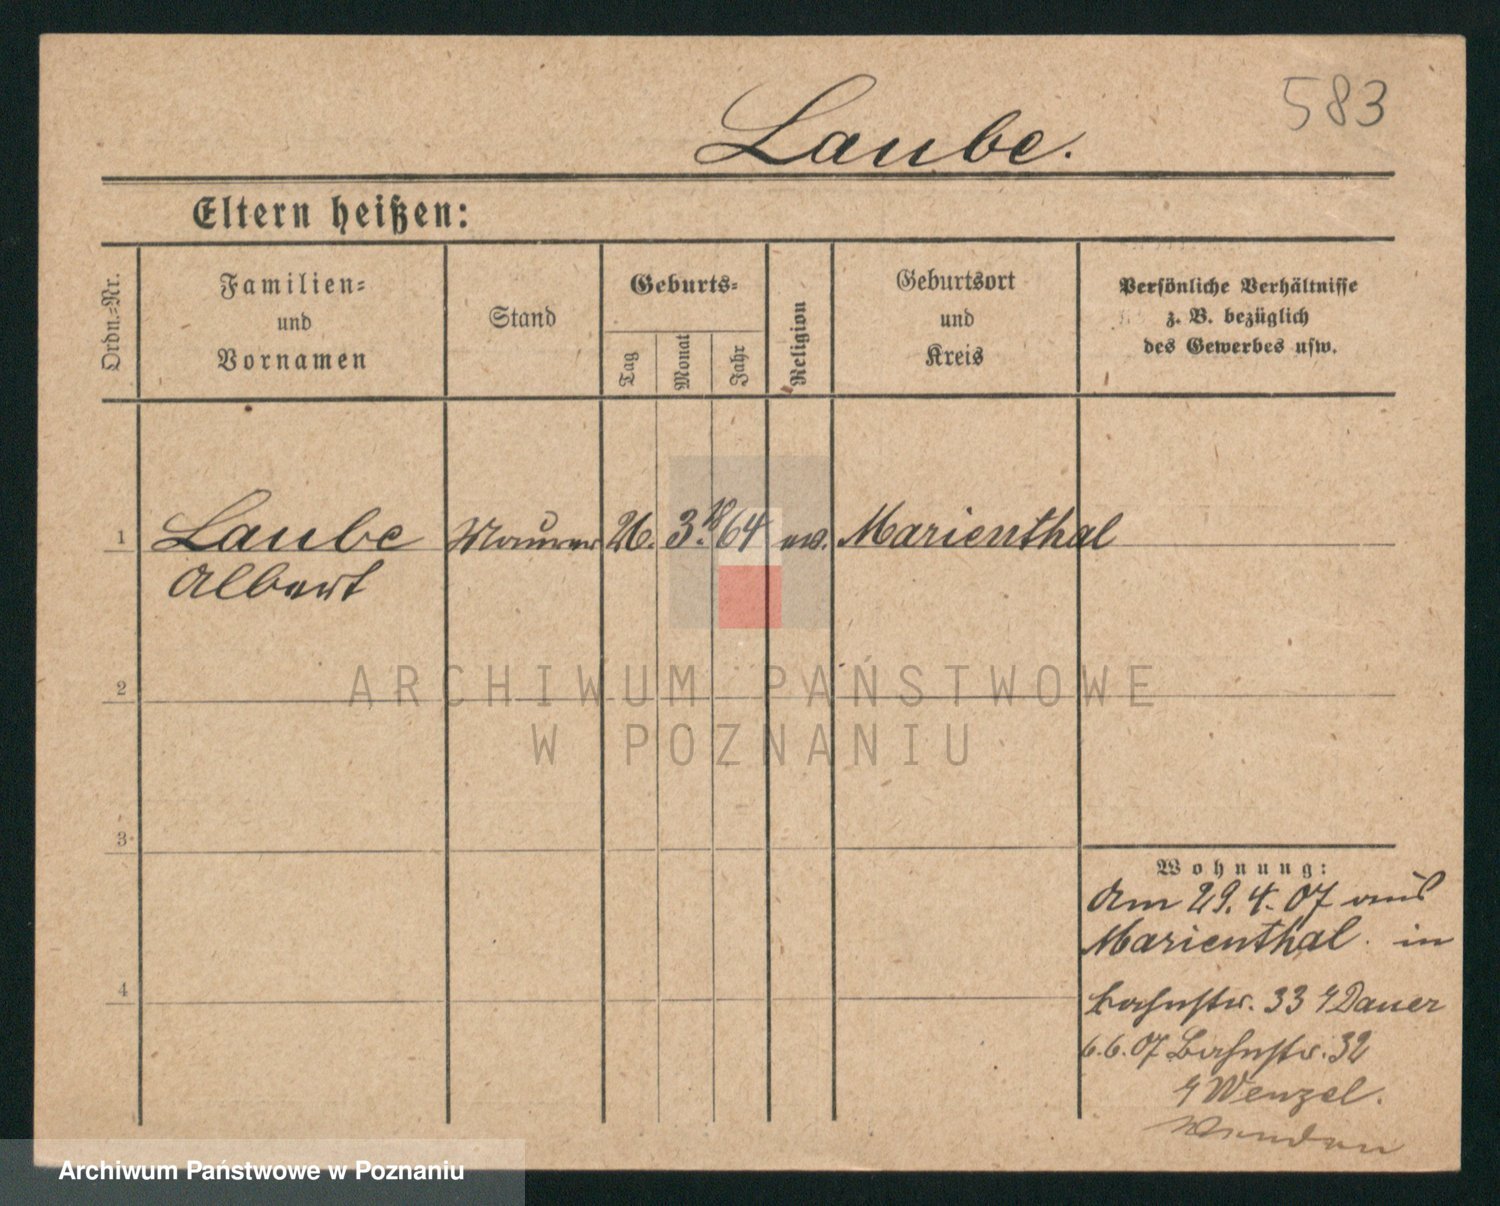 583
Laube.
Eltern heißen:
Ordn.=Nr.
Familien=
und
Vornamen
Stand
Geburts=
Tag
Monat
Jahr
Religion
Geburtsort
und
Kreis
Persönliche Verhältnisse
z. B. bezüglich
des Gewerbes usw.
1
Laube
Albert
Maurer
26.
3.
18
64
ev.
Marienthal
2
ARCHIWUM PAŃSTWOWE
W POZNANIU
3
4
Wohnung:
Am 29. 4. 07 aus
Marienthal. in
Bahnstr. 33 Dauer
6.6.07 Bahnstr. 32
Wenzel.
Wenden
Archiwum Państwowe w Poznaniu